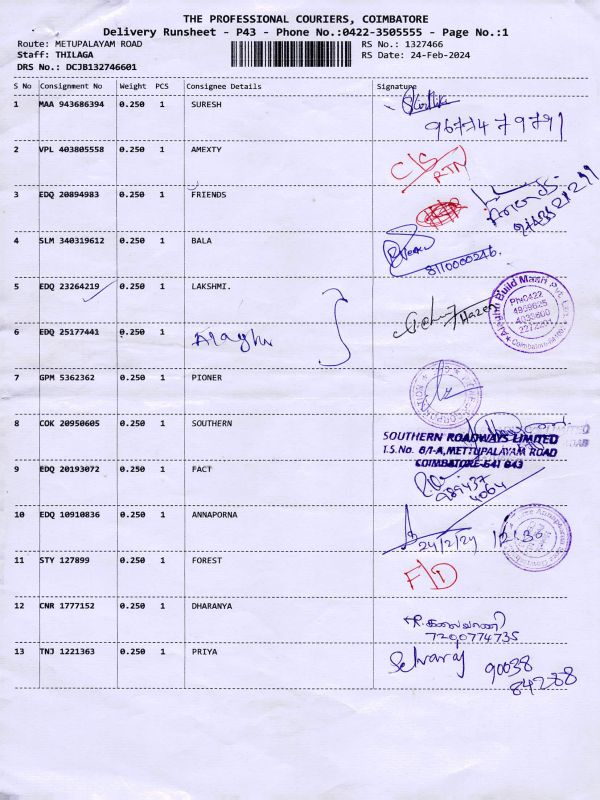 THE PROFESSIONAL COURIERS, COIMBATORE
Delivery Runsheet - P43 - Phone No.:0422-3505555 - Page No.:1
Route: METUPALAYAM ROAD RS No.: 1327466
Staff: THILAGA RS Date: 24-Feb-2024
DRS No.: DCJB132746601
S No Consignment No Weight PCS Consignee Details Signature
1 MAA 943686394 0.250 1 SURESH
9677479791
2 VPL 403805558 0.250 1 AMEXTY C/S
RTN
3 EDQ 20894983 0.250 1 FRIENDS
4 SLM 340319612 0.250 1 BALA
8110000246.
5 EDQ 23264219 0.250 1 LAKSHMI.
6 EDQ 25177441 0.250 1
Ph:0422
7 GPM 5362362 0.250 1 PIONER
8 COK 20950605 0.250 1 SOUTHERN
SOUTHERN ROADWAYS LIMITED
T.S.No. 6/1-A, METTUPALAYAM ROAD
COIMBATORE-641 043
9 EDQ 20193072 0.250 1 FACT
989437
4064
10 EDQ 10910836 0.250 1 ANNAPORNA
24/2/24 12.30
11 STY 127899 0.250 1 FOREST F/D
12 CNR 1777152 0.250 1 DHARANYA
R.கலைவாணி
7200774735
13 TNJ 1221363 0.250 1 PRIYA Selvaraj
90038
84288